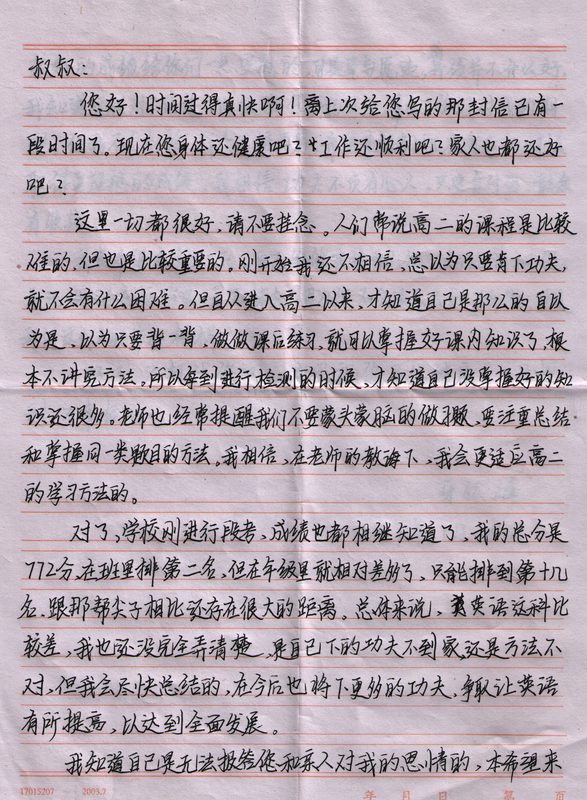 叔叔：
您好！时间过得真快啊！离上次给您写的那封信已有一
段时间了。现在您身体还健康吧？工作还顺利吧？家人也都还好
吧？
这里一切都很好，请不要挂念。人们常说高二的课程是比较
难的，但也是比较重要的。刚开始我还不相信，总以为只要肯下功夫，
就不会有什么困难。但自从进入高二以来，才知道自己是那么的自以
为是，以为只要背一背，做做课后练习，就可以掌握好课内知识了，根
本不讲究方法。所以每到进行检测的时候，才知道自己没掌握好的知
识还很多。老师也经常提醒我们不要蒙头蒙脑的做习题，要注重总结
和掌握同一类题目的方法。我相信，在老师的教诲下，我会更适应高二
的学习方法的。
对了，学校刚进行段考，成绩也都相继知道了，我的总分是
772分，在班里排第二名，但在年级里就相对差多了，只能排到第十几
名，跟那帮尖子相比还存在很大的距离。总体来说，英语这科比
较差，我也还没完全弄清楚，是自己下的功夫不到家还是方法不
对，但我会尽快总结的，在今后也将下更多的功夫，争取让英语
有所提高，以达到全面发展。
我知道自己是无法报答您和家人对我的恩情的，本希望来
17015207 2003.7 年 月 日 第 页